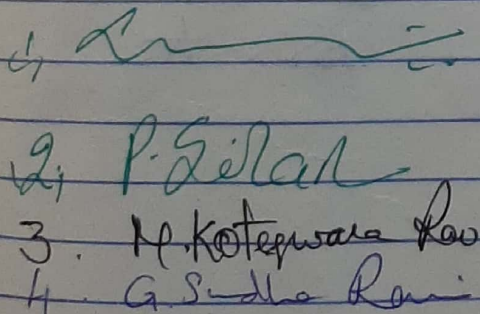 1,
2, P. Silar
3. M. Koteswara Rao
4. G. Sudha Rani